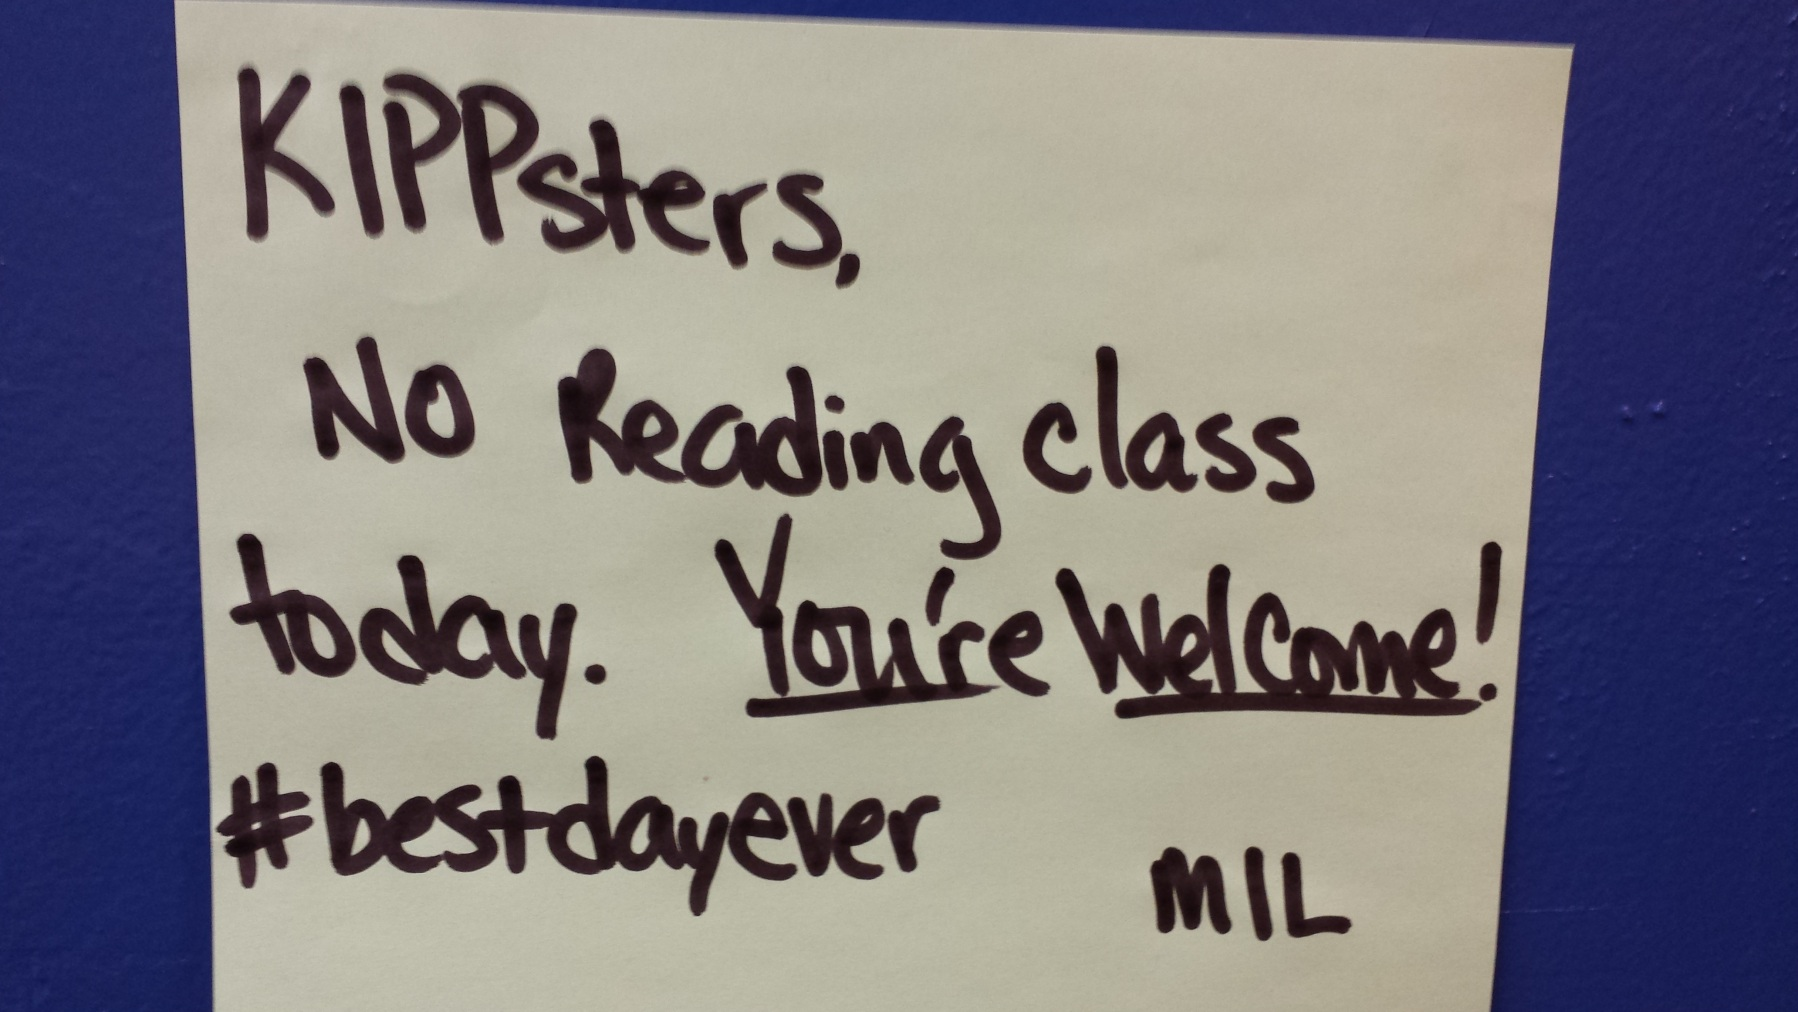 KIPPsters,
No Reading class
today. You're Welcome!
#bestdayever
MIL